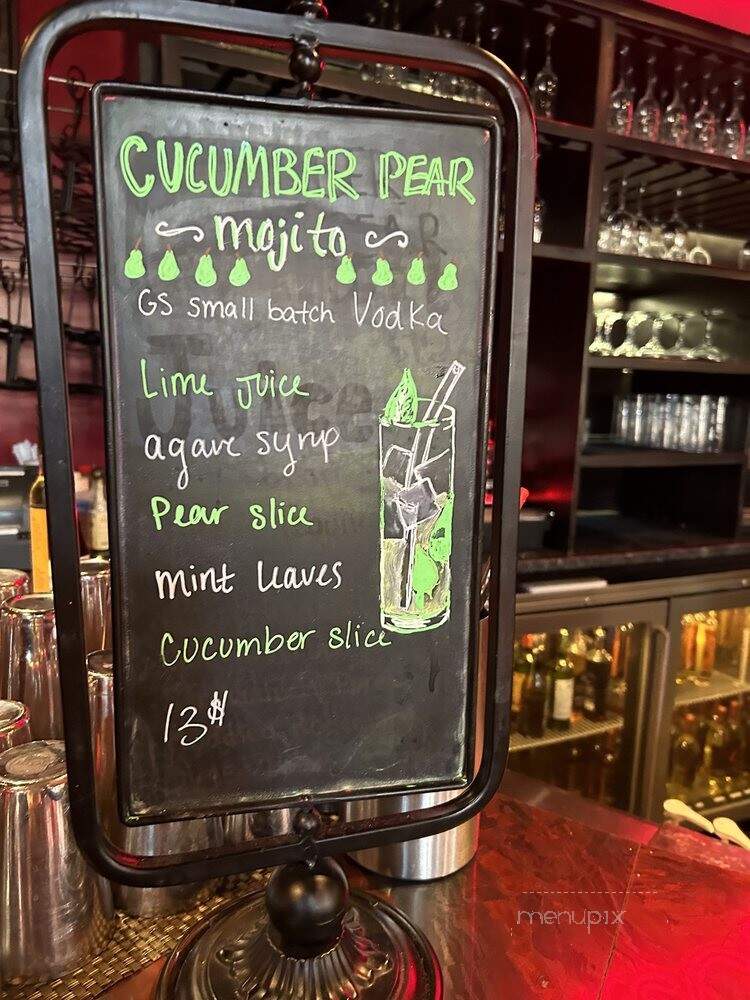 CUCUMBER PEAR
mojito
GS small batch Vodka
Lime Juice
agave syrup
Pear slice
mint leaves
Cucumber slice
13$
menupix